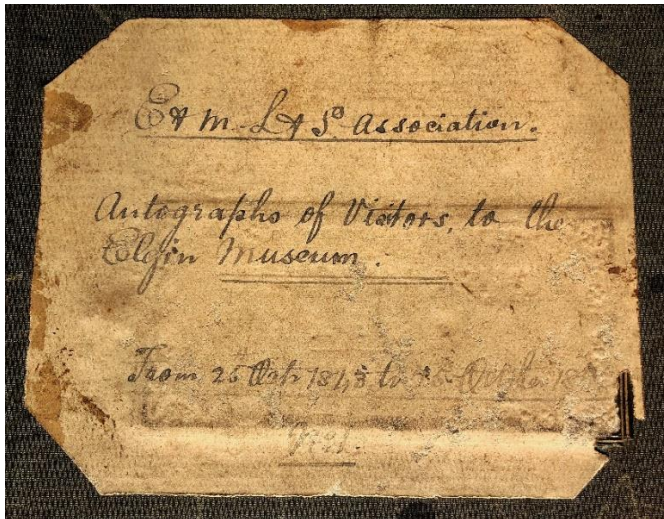 E & M. L & Sc. Association.
Autographs of Visitors, to the
Elgin Museum.
From 25 Oct
No 1.